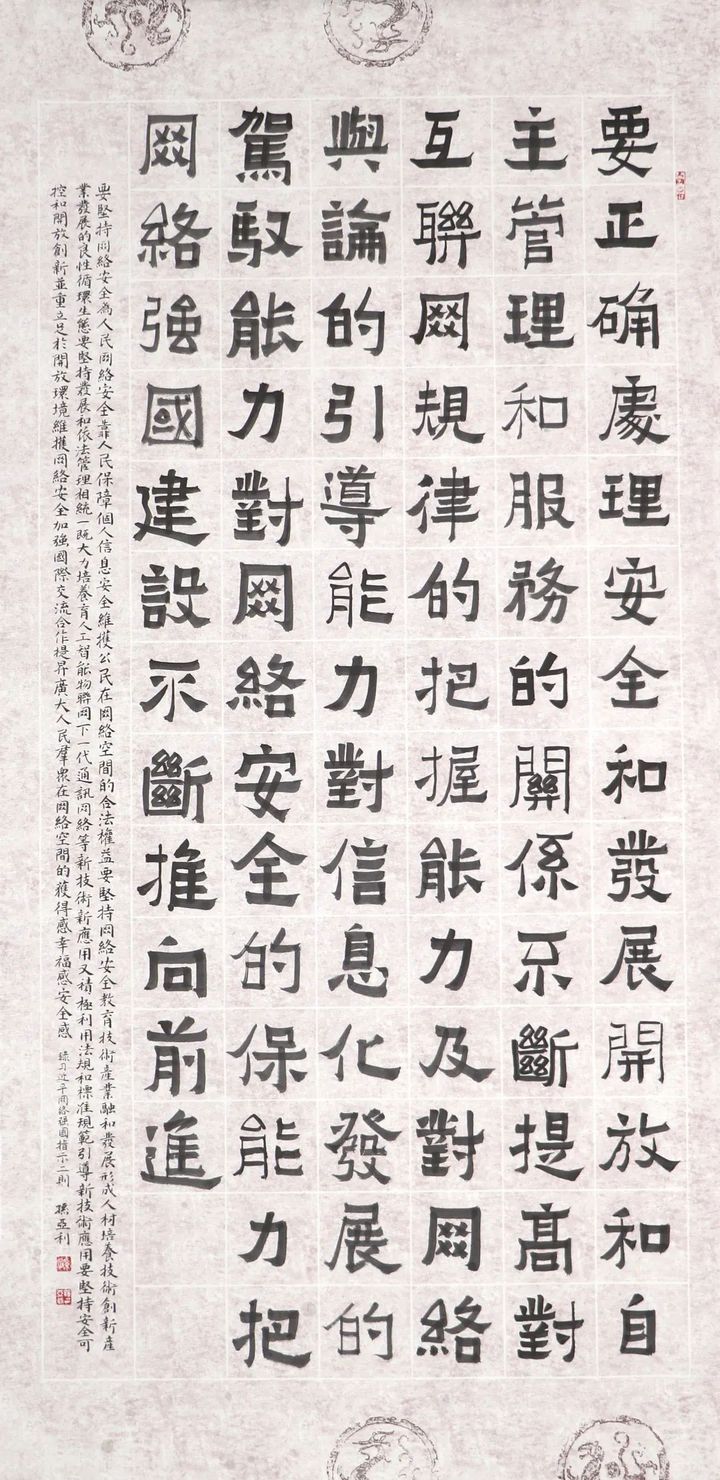 要正确處理安全和發展開放和自
主管理和服務的關係不斷提髙對
互聯网規律的把握能力及對网絡
與論的引導能力對信息化發展的
駕馭能力對网絡安全的保能力把
网絡強國建設不斷推向前進
要堅持网絡安全為人民网絡安全靠人民保障個人信息安全維護公民在网絡空間的合法權益要堅持网絡安全教育技術産業融和發展形成人材培養技術創新産
業發展的良性循環生態要堅持發展和依法管理相統一既大力培養育人工智能物聯网下一代通訊网絡等新技術新應用又積極利用法規和標准規範引導新技術應用要堅持安全可
控和開放創新並重立足於開放環境維護网絡安全加強國際交流合作提昇廣大人民羣衆在网絡空間的獲得感幸福感安全感 錄习近平网絡强國指示二則 孫亞利